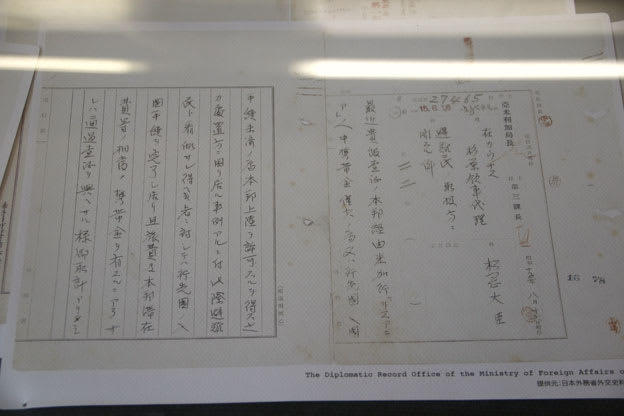 27465
亜米利加局長
第三課長
在カウナス
杉原領事代理
松岡大臣
避難民ノ取扱方ニ
関スル件
最近貴館査証ノ本邦経由米加行「リスアニ
ア」人中携帯金僅少ノ為又ハ行先国ノ
手続未済ノ為本邦上陸ヲ許可スルヲ得ス之
カ処置方ニ困リ居ル事例アルニ付此際避難
民ト看做サレ得ヘキ者ニ対シテハ行先国ノ入
国手続ヲ完了シ居リ且旅費及本邦滞在
費等ノ相当ノ携帯金ヲ有スルニアラサ
レハ通過査証ヲ与ヘサル様御取計アリタシ
The Diplomatic Record Office of the Ministry of Foreign Affairs o
提供元:日本外務省外交史料